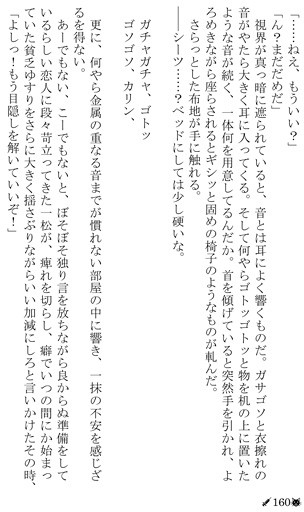 「……ねえ、もういい？」
「ん？まだだめだ」
　視界が真っ暗に遮られていると、音とは耳によく響くものだ。ガサゴソと衣擦れの
音がやたら大きく耳に入ってくる。そして何やらゴトッゴトッと物を机の上に置いた
ような音が続く、一体何を用意してるんだか。首を傾げていると突然手を引かれ、よ
ろめきながら座らされるとギシッと固めの椅子のようなものが軋んだ。
　さらっとした布地が手に触れる。
――シーツ……？ベッドにしては少し硬いな。
ガチャガチャ、ゴトッ
ゴソゴソ、カリン、
　更に、何やら金属の重なる音までが慣れない部屋の中に響き、一抹の不安を感じざ
るを得ない。
　あーでもない、こーでもないと、ぼそぼそ独り言を放ちながら良からぬ準備をして
いるらしい恋人に段々苛立ってきた一松が、痺れを切らし、癖でいつの間にか始まっ
ていた貧乏ゆすりをさらに大きく揺さぶりながらいい加減にしろと言いかけたその時、
「よしっ！もう目隠しを解いていいぞ！」
160